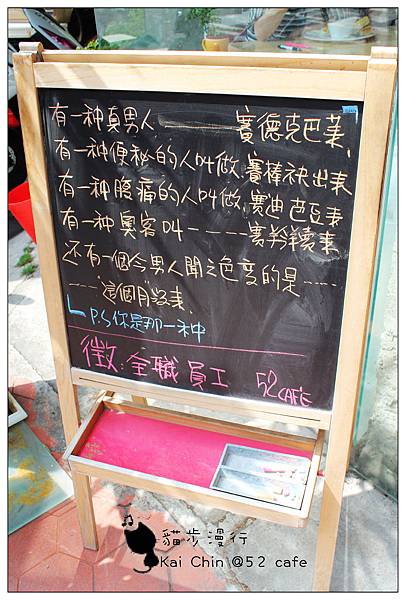 有一种真男人———賽德克巴萊、
有一种便秘的人叫做、賽棒袂出來
有一种腹痛的人叫做、賽迪巴豆來
有一种奧客叫-----賽羚羊來
还有一個令男人聞之色变的是----
----這個月没來、
P.S 你是那一种
徵:全職員工 52 CAFE
貓步漫行
Kai Chin @52 cafe